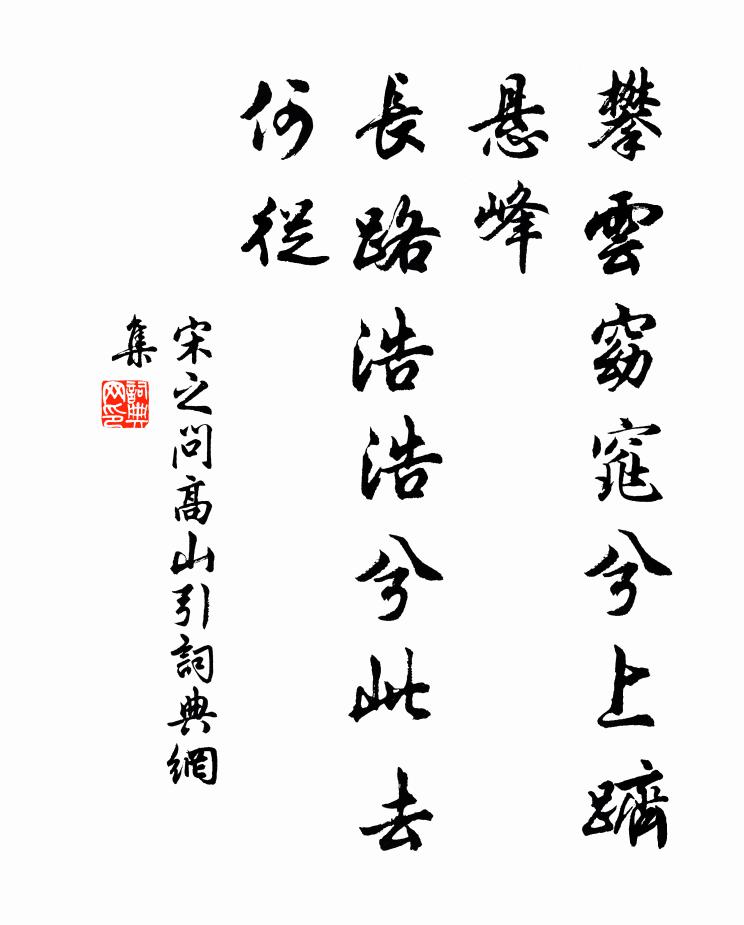 攀雲窈窕兮上躋
懸峰
長路浩浩兮此去
何從
宋之問高山引詞典網
集
詞典網印